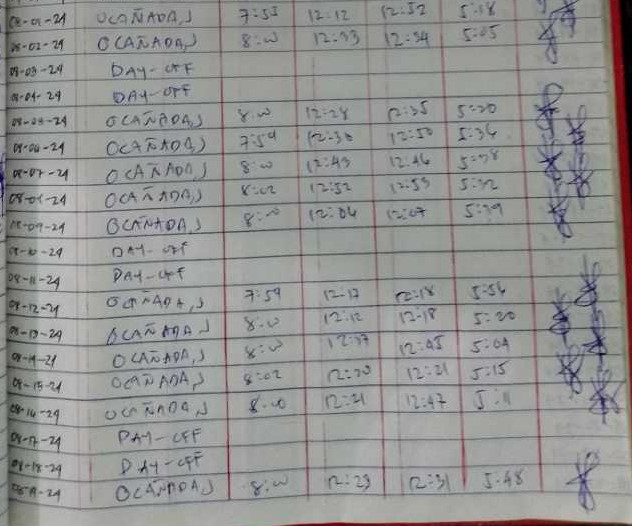 08-01-24 OCAÑADA,J 7:55 12:12 12:52 5:18
08-02-24 OCAÑADA,J 8:00 12:33 12:34 5:05
08-03-24 DAY-OFF
08-04-24 DAY-OFF
08-05-24 OCAÑADA,J 8:00 12:28 12:35 5:20
08-06-24 OCAÑADA,J 7:59 12:30 12:50 5:36
08-07-24 OCAÑADA,J 8:00 12:43 12:46 5:38
08-08-24 OCAÑADA,J 8:02 12:52 12:53 5:32
08-09-24 OCAÑADA,J 8:00 12:04 12:07 5:39
08-10-24 DAY-OFF
08-11-24 DAY-OFF
08-12-24 OCAÑADA,J 7:59 12:17 12:18 5:56
08-13-24 OCAÑADA,J 8:00 12:12 12:18 5:20
08-14-24 OCAÑADA,J 8:00 12:37 12:45 5:04
08-15-24 OCAÑADA,J 8:02 12:20 12:21 5:15
08-16-24 OCAÑADA,J 8:00 12:21 12:47 5:11
08-17-24 DAY-OFF
08-18-24 DAY-OFF
08-19-24 OCAÑADA,J 8:00 12:23 12:31 5:48